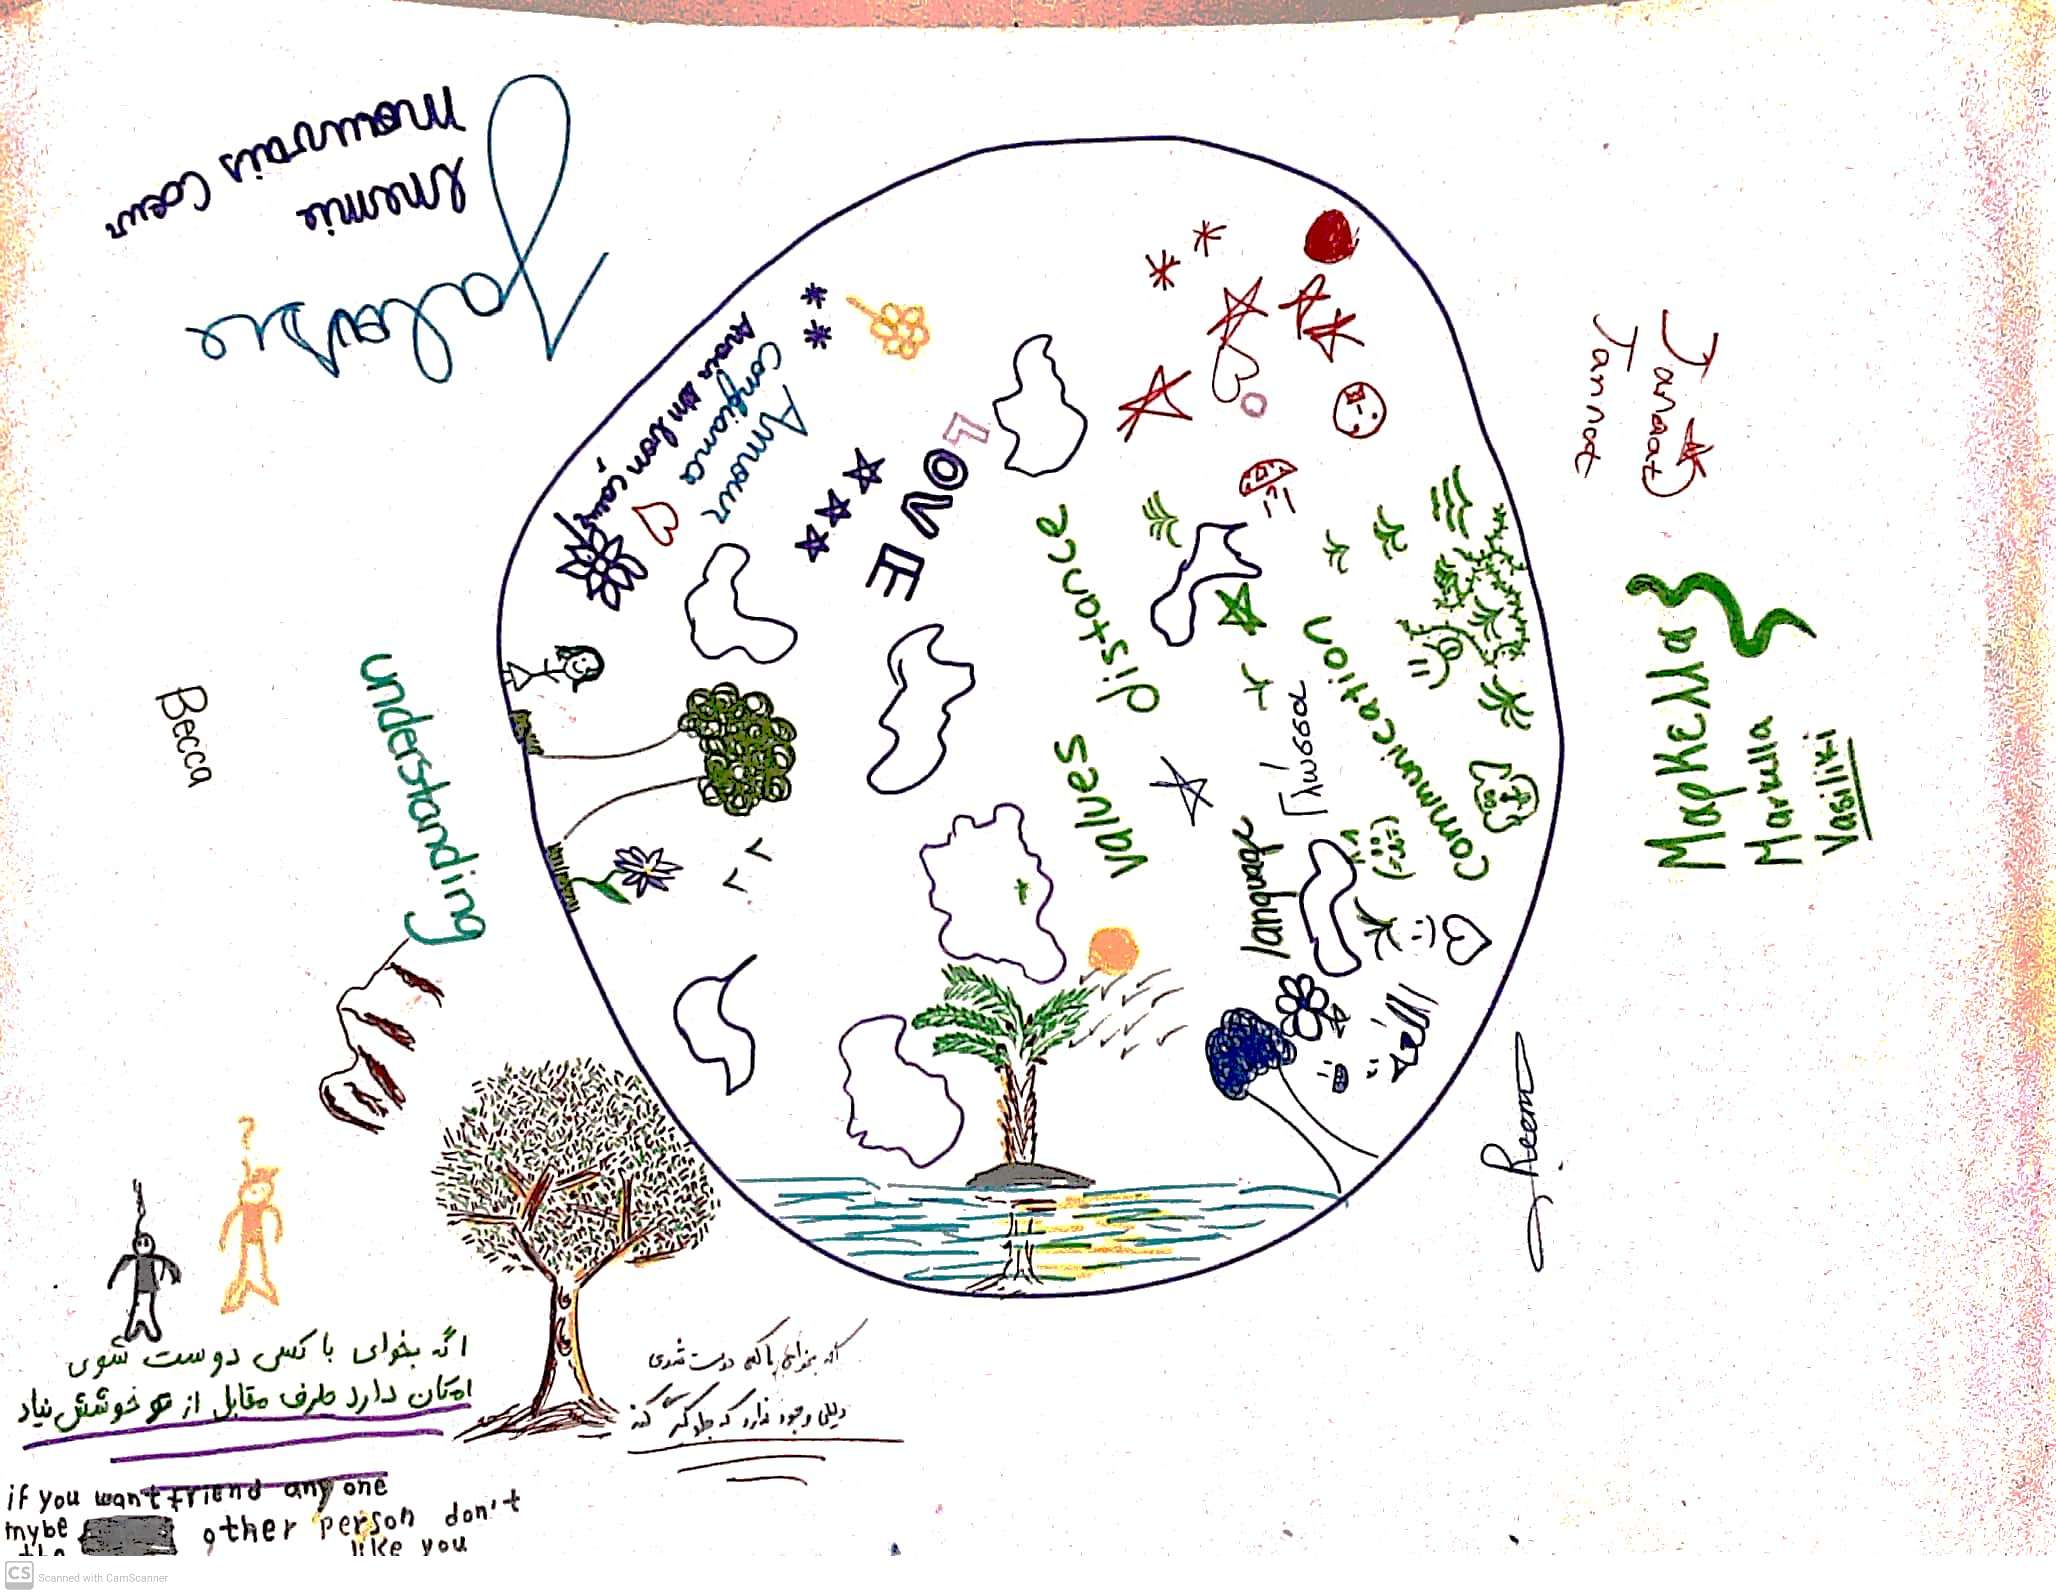 mauvais Coeur
ennemie
Jalousie
Avoir un bon Coeur
Confiance
Amour
LOVE
distance
values
Communication
Γλώσσα
language
Janaat
Jannat
Μαρκέλλα
Markella
Vasiliki
Reem
understanding
Becca
اگه بخوای با کسی دوست شوی
امکان دارد طرف مقابل از تو خوشش نیاد
اگه بخواهی با کسی دوست شوی
دلیلی وجود ندارد که جلوگیری کند
if you want friend any one
mybe other person don't
the like you
CS Scanned with CamScanner